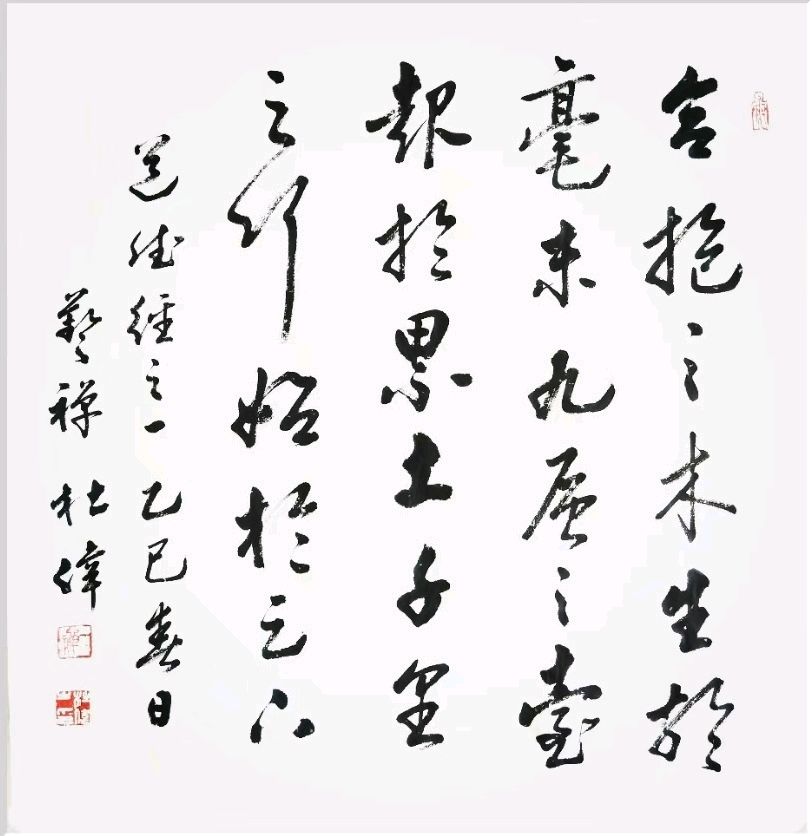 合抱之木生於
毫末九層之臺
起於累土千里
之行始於足下
道德經之一 乙巳春日
藝禅 杜偉